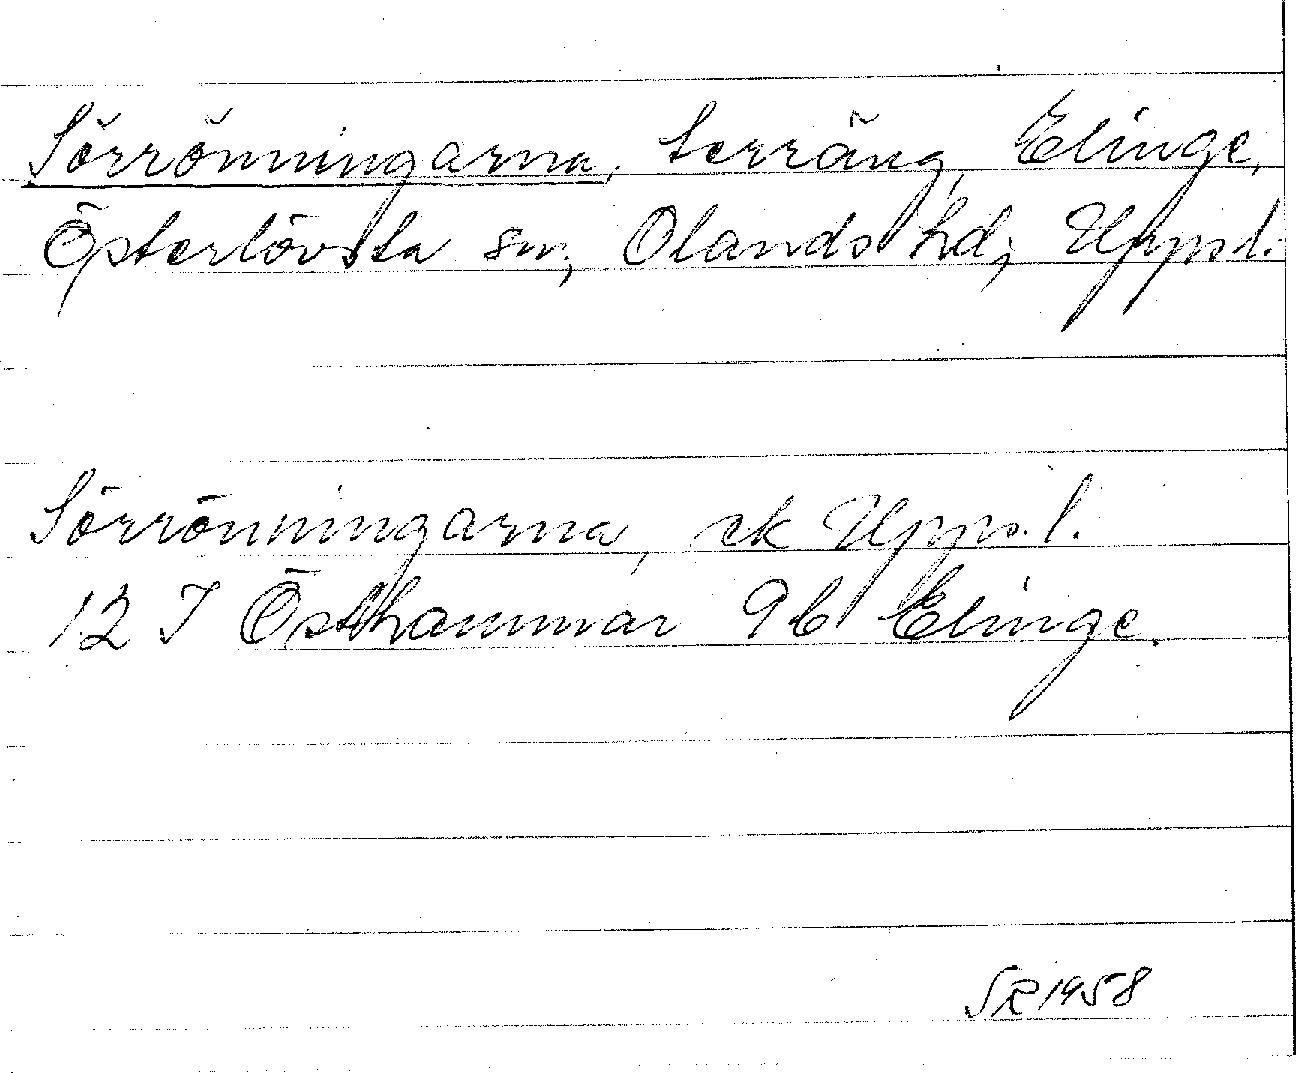 Sörrönningarna, terräng, Elinge,
Österlövsta sn, Olands hd, Uppl.
Sörrönningarna, ek Uppl.
12 I Östhammar 9 b Elinge.
SR 1958